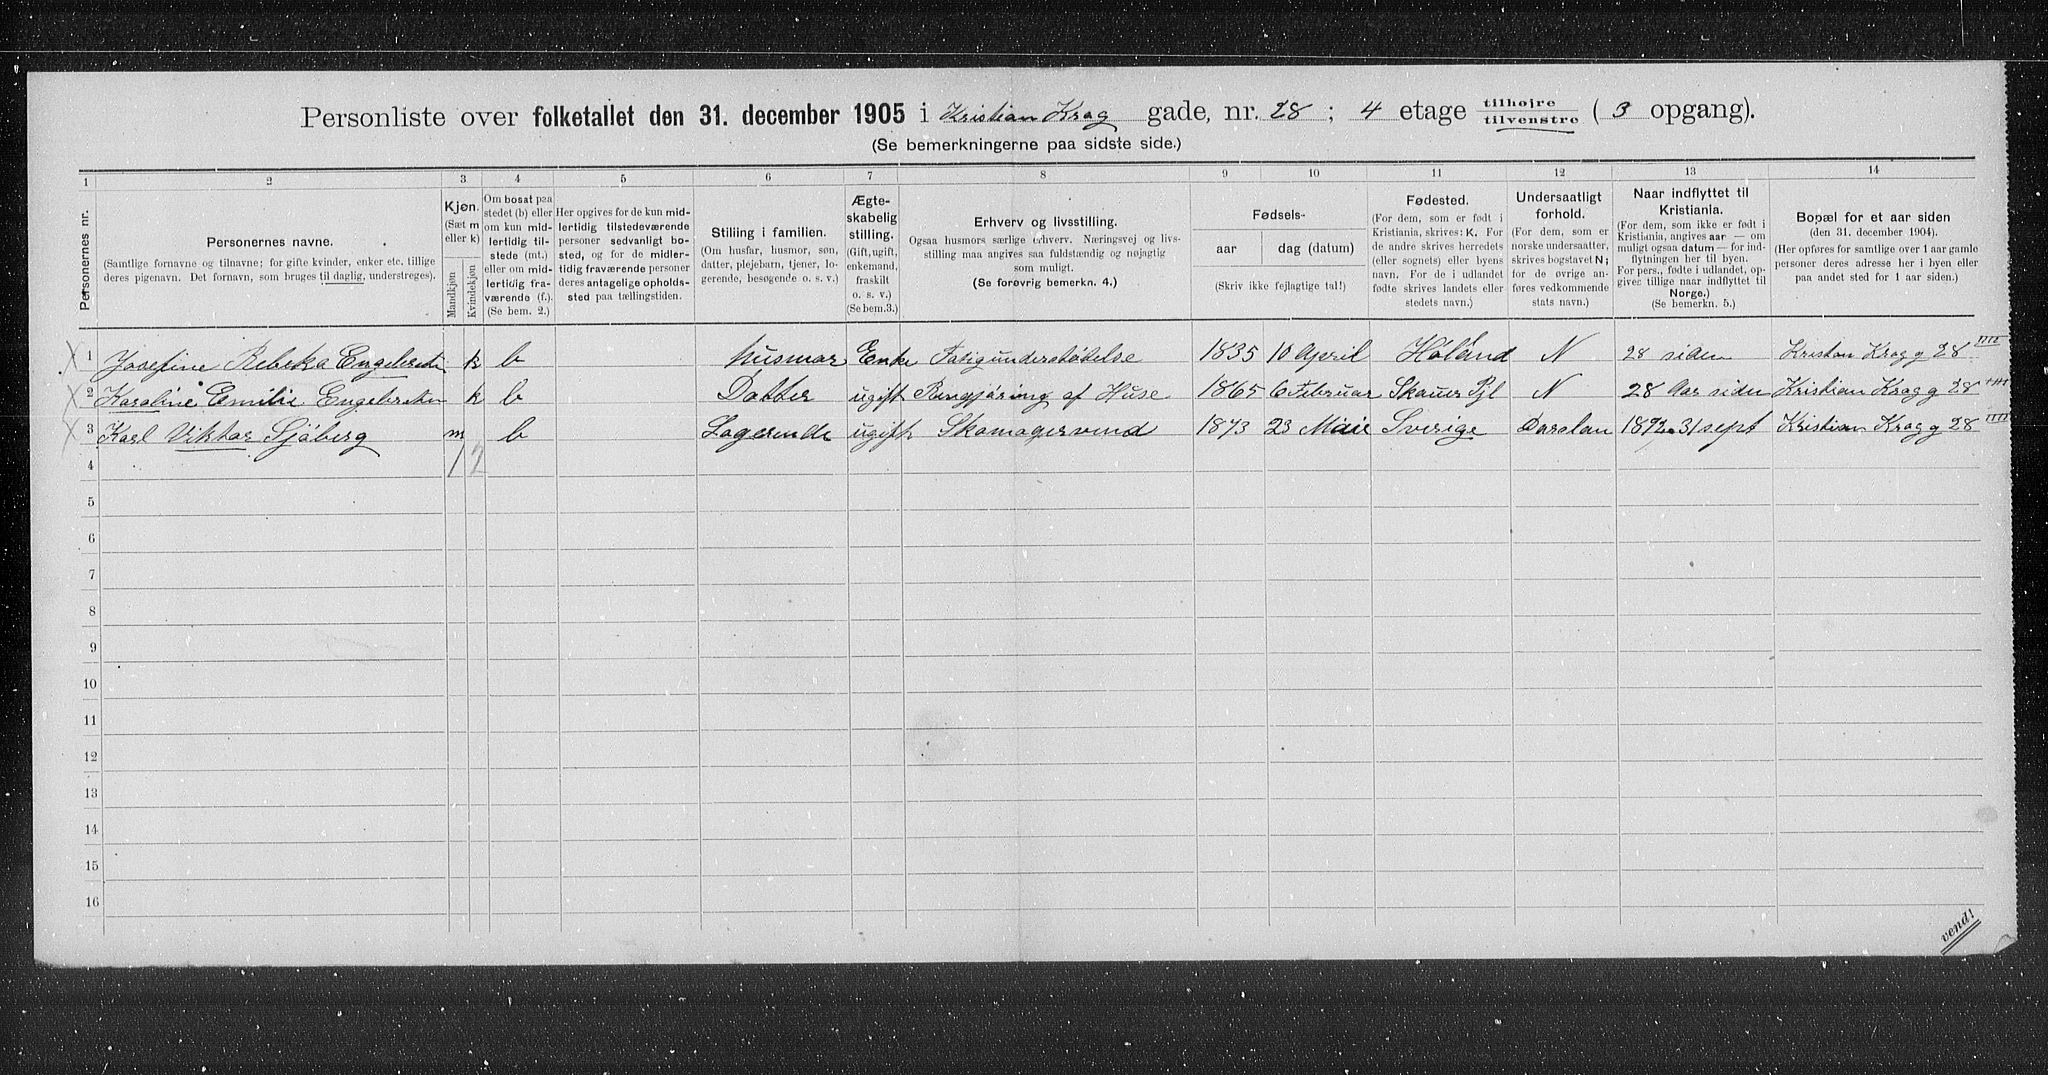 Personliste over folketallet den 31. december 1905 i Kristian Krag gade, nr. 28 ; 4 etage tilhøjre tilvenstre ( 3 opgang).
(Se bemerkningerne paa sidste side.)
1 2 3 4 5 6 7 8 9 10 11 12 13 14
Personernes nr.
Personernes navne.
(Samtlige fornavne og tilnavne; for gifte kvinder, enker etc. tillige
deres pigenavn. Det fornavn, som bruges til daglig, understreges).
Kjøn.
(Sæt m
eller k)
Mandkjøn
Kvindekjøn
Om bosat paa
stedet (b) eller
om kun mid-
lertidig til-
stede (mt.)
eller om mid-
lertidig fra-
værende (f.).
(Se bem. 2.)
Her opgives for de kun mid-
lertidig tilstedeværende
personer sedvanligt bo-
sted, og for de midler-
tidig fraværende personer
deres antagelige opholds-
sted paa tællingstiden.
Stilling i familien.
(Om husfar, husmor, søn,
datter, plejebarn, tjener, lo-
gerende, besøgende o. s. v.)
Ægte-
skabelig
stilling.
(Gift, ugift,
enkemand,
fraskilt
o. s. v.)
(Se bem.3.)
Erhverv og livsstilling.
Ogsaa husmors særlige erhverv. Næringsvej og livs-
stilling maa angives saa fuldstændig og nøjagtig
som muligt.
(Se forøvrig bemerkn. 4.)
Fødsels-
aar dag (datum)
(Skriv ikke fejlagtige tal!)
Fødested.
(For dem, som er født i
Kristiania, skrives: K. For
de andre skrives herredets
(eller sognets) eller byens
navn. For de i udlandet
fødte skrives landets eller
stedets navn.)
Undersaatligt
forhold.
(For dem, som er
norske undersaatter,
skrives bogstavet N;
for de øvrige an-
føres vedkommende
stats navn.)
Naar indflyttet til
Kristiania.
(For dem, som ikke er født i
Kristiania, angives aar — om
muligt ogsaa datum — for ind-
flytningen her til byen.
For pers., fødte i udlandet, op-
gives tillige naar indflyttet til
Norge.)
(Se bemerkn. 5.)
Bopæl for et aar siden
(den 31. december 1904).
(Her opføres for samtlige over 1 aar gamle
personer deres adresse her i byen eller
paa andet sted for 1 aar siden.)
1 Josefine Rebeka Engebretsen k b husmor Enke Fatigunderstøttelse 1835 10 April Høland N 28 siden Kristian Krag g 28
2 Karoline Emilie Engebretsen k b Datter ugift Rengjøring af Huse 1865 6 Februar Skauer Pjl N 28 Aar siden Kristian Krag g 28
3 Karl Viktor Sjøberg m b Logerende ugift Skomagersvend 1873 23 Maie Sverige 31 sept Kristian Krag g 28
4 1 2
5
6
7
8
9
10
11
12
13
14
15
16
vend!